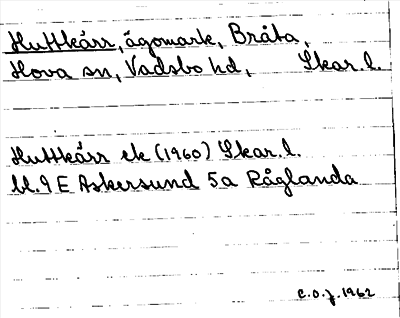 Huttkärr, ägomark, Bråta,
Hova sn, Vadsbo hd, Skar. l.
Huttkärr ek (1960) Skar. l.
bl. 9 E Askersund 5a Råglanda
C.O.J. 1962